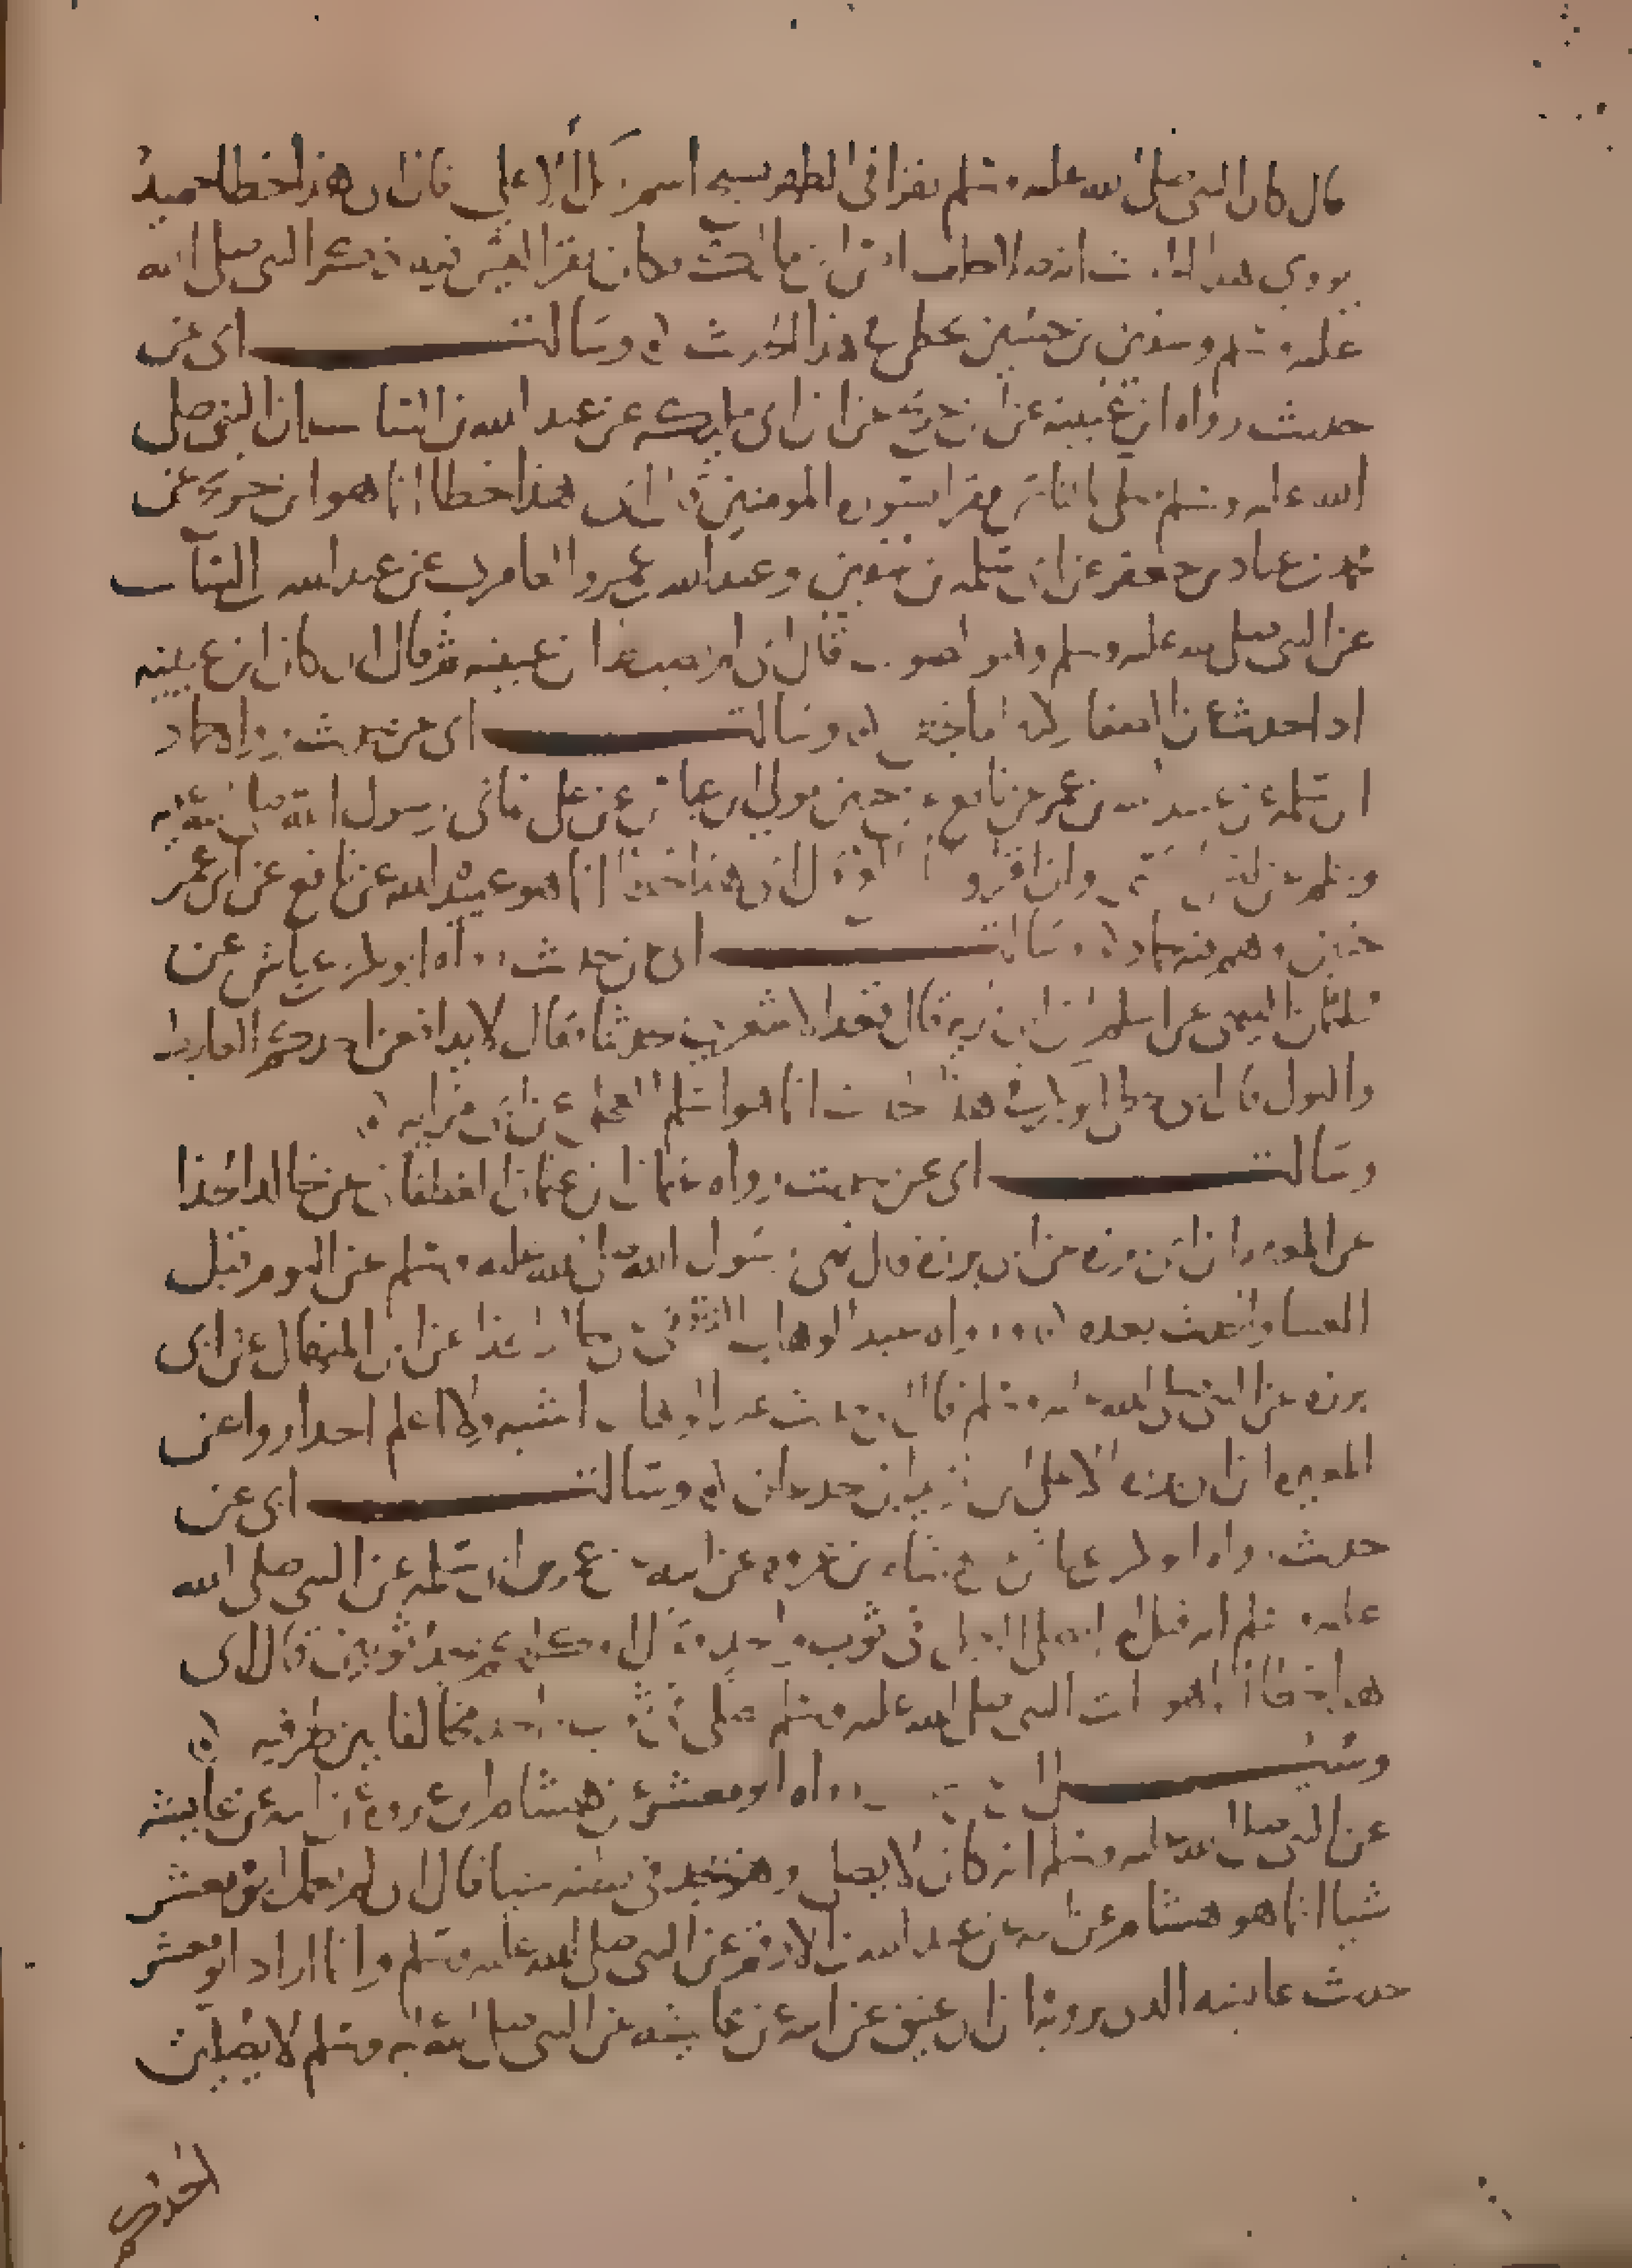 قال كان النبي صلى الله عليه وسلم يقرا في الظهر بسبح اسم ربك الاعلى قال ابي هذا خطا حميد
يروي هذا انس ابن مالك كان يقرا ليس فيه ذكر النبي صلى الله
عليه وسلم وسفين بن حسين يخطي في هذا الحديث ٥ وسالت ابي عن
حديث رواه ابن عيينه عن ابن جريج عن ابن ابي مليكه عن عبد الله بن السايب ان النبي صلى
الله عليه وسلم صلى بالناس فقرا بسوره المومنين قال ابي هذا خطا انما هو ابن جريج عن
محمد بن عباد بن جعفر عن ابي سلمه بن سفين وعبد الله بن عمرو العامري عن عبد الله بن السايب
عن النبي صلى الله عليه وسلم وهو الصواب قال ابي لم يضبط ابن عيينه ثم قال ابي كان ابن عيينه
اذا حدث عن الصغار كثيرا ما يخطي ٥ وسالت ابي عن حديث رواه حماد
ابن سلمه عن عبيد الله بن عمر عن نافع عن حنين مولى ابن عباس عن علي نهاني رسول الله صلى الله عليه
وسلم عن لبس القسي وان اقرا قال ابي هذا خطا انما هو عبيد الله عن نافع عن ابن
حنين وهم فيه حماد ٥ وسالت ابي عن حديث رواه ابو بكر بن عياش عن
سليمان التيمي عن اسلم عن ابي مريه قال فقد الاشعري فقال لا يدافعن احدكم الغايط
والبول قال ابي هذا حديث انما هو اسلم العجلي عن ابي مرايه ٥
وسالت ابي عن حديث رواه عثمان بن عثمان الغطفاني عن خالد الحذا
عن المغيره بن ابي برزه عن ابي برزه قال نهى رسول الله صلى الله عليه وسلم عن النوم قبل
العشا والحديث بعده ٥ ورواه عبد الوهاب الثقفي عن خالد الحذا عن ابي المنهال عن ابي
برزه عن النبي صلى الله عليه وسلم قال ابي حديث عبد الوهاب اشبه ولا اعلم احدا روا عن
المغيره بن ابي برزه الا علي بن زيد بن جدعان ٥ وسالت ابي عن
حديث رواه ابو بكر بن عياش عن هشام بن عروه عن ابيه عن عمر بن ابي سلمه عن النبي صلى الله
عليه وسلم انه قيل له ايصلي الرجل في ثوب واحد قال او كلكم يجد ثوبين قال ابي
هذا خطا انما هو رايت النبي صلى الله عليه وسلم صلى في ثوب واحد مخالفا بين طرفيه ٥
وسئل ابي عن حديث رواه ابو معشر عن هشام بن عروه عن ابيه عن عايشه
عن النبي صلى الله عليه وسلم انه كان لا يصلي وهو يجد في بطنه شيا قال ابي لم يعمل ابو معشر
شيا انما هو هشام عن ابيه عن عبد الله بن الارقم عن النبي صلى الله عليه وسلم وانما اراد ابو معشر
حديث عايشه الذي يرويه ابن ابي عتيق عن ابيه عن عايشه عن النبي صلى الله عليه وسلم لا يصلين
احدكم